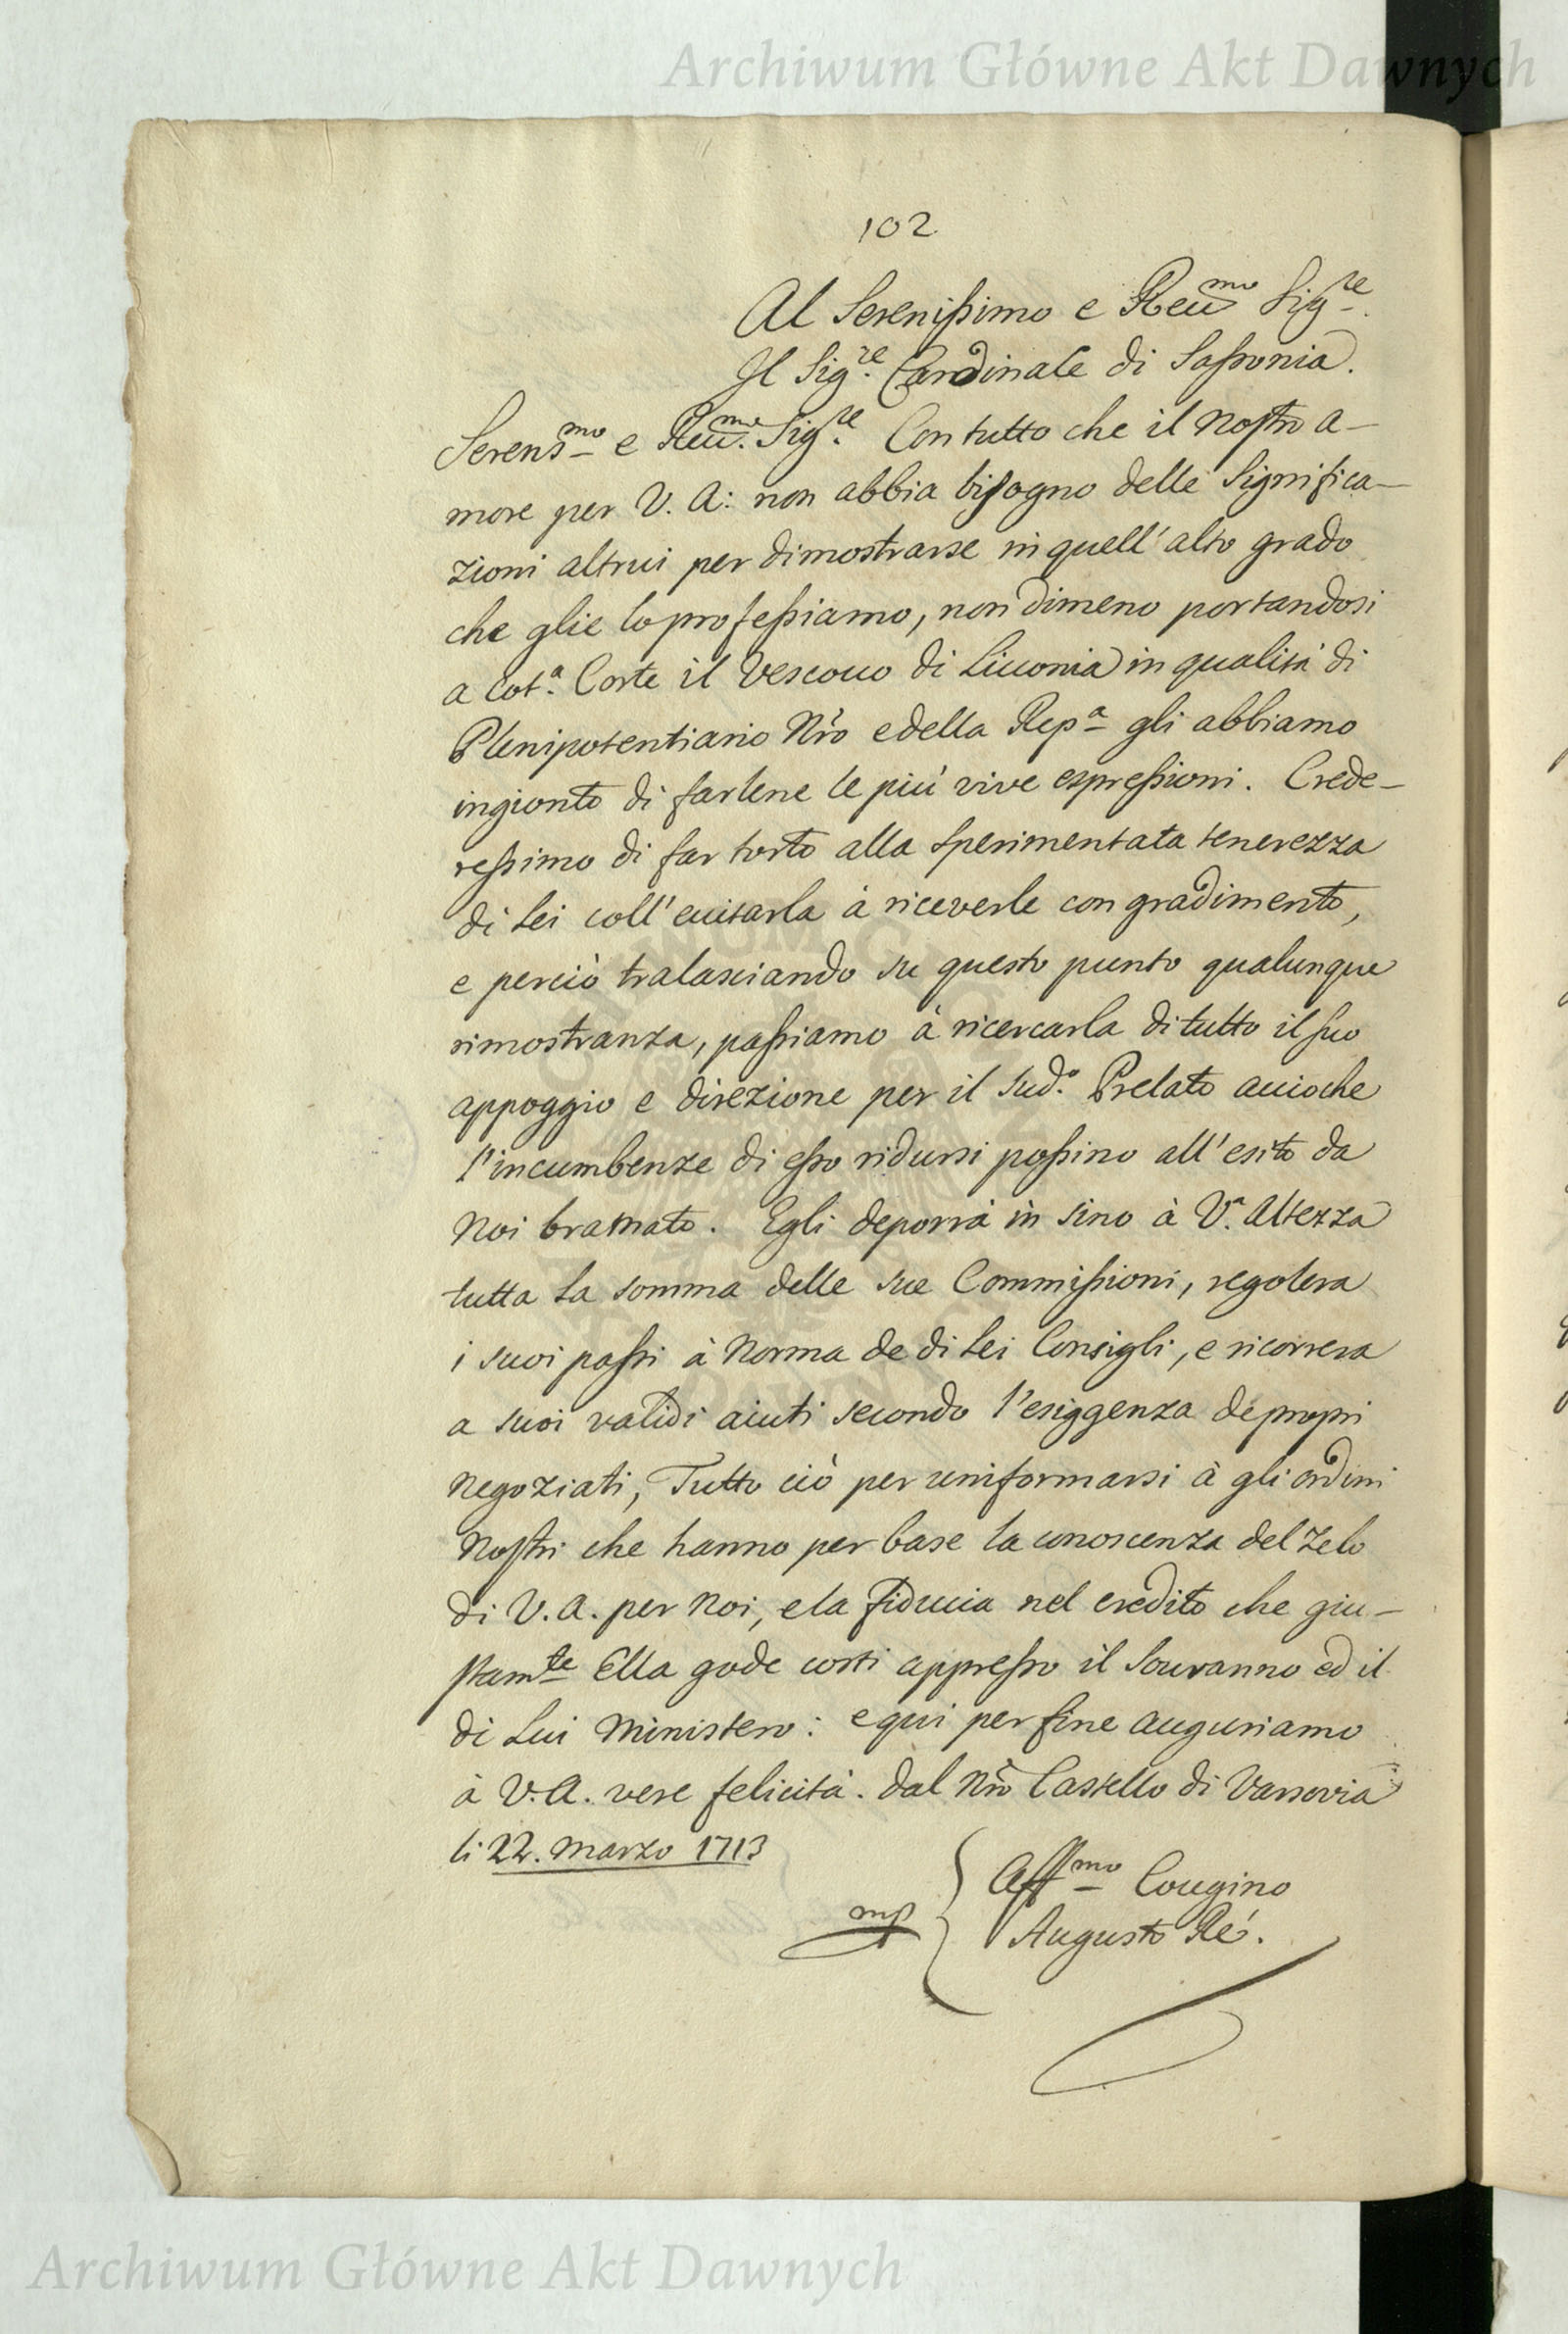 Archiwum Główne Akt Dawnych
102
Al Serenissimo e Reu.mo Sig.re
Il Sig.re Cardinale di Sassonia.
Serens.mo e Reu.mo Sig.re Con tutto che il nostro a-
more per V. A: non abbia bisogno delle significa-
zioni altrui per dimostrarse in quell'alto grado
che glie lo professiamo, non dimeno portandosi
a cot.a Corte il Vescouo di Liuonia in qualità di
Plenipotentiario Nro e della Rep.a gli abbiamo
ingionto di farlene le più vive espressioni. Crede-
ressimo di far torto alla sperimentata tenerezza
di Lei coll'euitarla à riceverle con gradimento,
e perciò tralasciando su questo punto qualunque
rimostranza, passiamo à ricercarla di tutto il suo
appoggio e direzione per il sud.o Prelato accioche
l'incumbenze di esso ridursi possino all'esito da
Noi bramato. Egli deporrà in sino à V.a Altezza
tutta la somma delle sue Commissioni, regolera
i suoi passi à norma de di Lei Consigli, e ricorrera
a suoi validi aiuti secondo l'esiggenza de propri
negoziati, Tutto ciò per uniformarsi à gli ordini
Nostri che hanno per base la conoscenza del Zelo
di V. A. per noi, e la fiducia nel credito che giu-
stam.te Ella gode costi appresso il Souvranno ed il
di Lui Ministero: e qui per fine auguriamo
à V. A. vere felicità. dal Nro Castello di Varsovia
li 22. Marzo 1713
Aff.mo Cougino
mp Augusto Ré.
Archiwum Główne Akt Dawnych